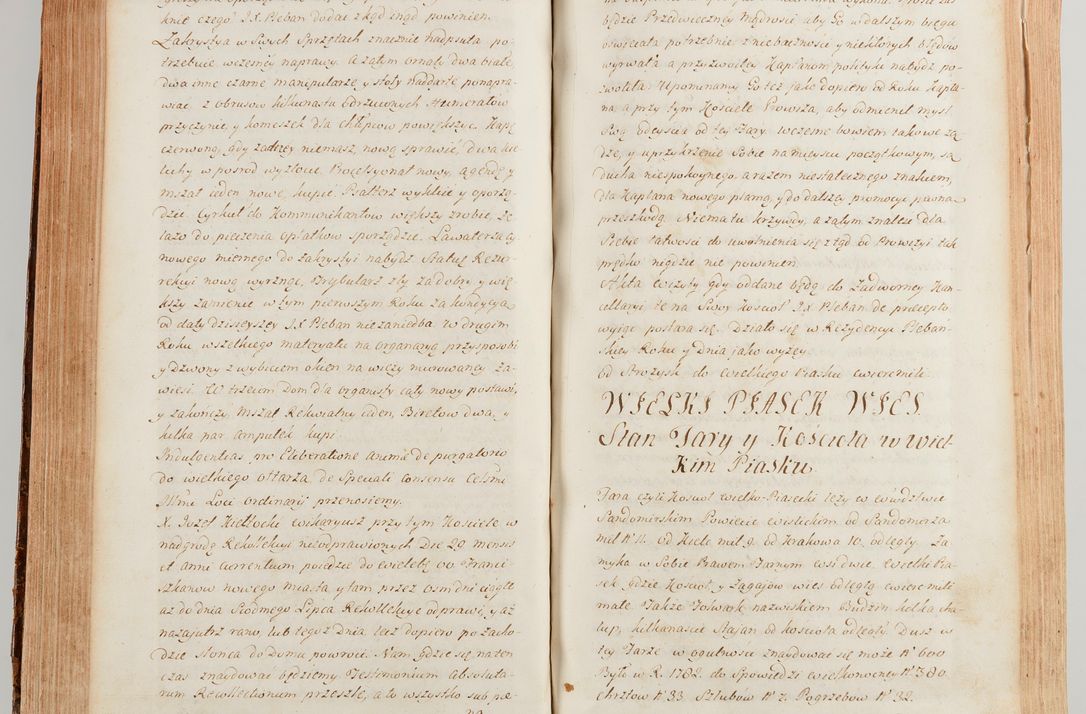 knie czego J.X Pleban dodać zkąd znąd powinien.
Zakrystya w Swych Sprzętach znacznie nadpsuta po-
trzebuie wczesney naprawy. a zatym ornaty dwa białe,
dwa inne czarne manipularze y stoły naddarte ponapra-
wiać z obrusow kilkunastu odrzuconych Humerałow
przyczynić, y komeszek dla chłopcow powiększyć. Kapę
czerwoną, gdy żadney niemasz, nową sprawić, dwa kie-
lichy w posrod wyzłocić. Processyonał nowy, agendę y
mszał ieden nowe, kupić Psałterz wykleić y oporzą-
dzić. Cyrkuł do Kommunikantow większy zrobić, że
lazo do pieczenia opłatkow sporządzić. Lawaterza cy
nowego miernego do zakrystyi nabydź Statuę Rezur-
rekcyi nową wyrznąć, Trybularz zły za dobry y wię
kszy zamienić w tym pierwszym Roku za kondycyą
od daty dzisieyszey J.X Pleban nie zaniedba. W drugim
Roku wszelkiego materyału na organaryą przysposobi
y dzwony z wybiciem okien na wieży murowaney za-
wiesi. W trzecim Dom dla organisty cały nowy postawi,
y zakończy, mszał Rekwialny ieden, Biretow dwa, y
kilka par ampułek kupi.
Indulgentias pro Eliberatione animæ de purgatorio
do wielkiego ołtarza, de Speciali consensu Celsmi
Illmi Loci ordinarij przenosiemy.
X. Jozef Kiełkocki wikaryusz przy tym Kościele w
nadgrodę Rekollekcyi nieodprawionych Die 29 mensis
et anni currentium poiedzie do wielełę oo Franci
szkanow nowego miasta y tam przez osm dni ciągle
aż do dnia Siodmego Lipca Rekollekcye odprawi, y aż
nazajutrz rano, lub tegoż dnia, lecz dopiero po zacho-
dzie Słonca do Domu powroci. Nam gdzie się na ten
czas znaydować będziemy Testimonium absoluta-
rum Recollectionum przeszle, a to wszystko sub pæ-
będzie Przedwieczney Mądrości aby Go w dalszym biegu
oświecała potrzebnie, z niebaczności y niektorych błędow
wyrwała a przyzwoitey Kapłanom polityki nabydź po-
zwoliła. Upominamy Go też jako dopiero od Roku Kapła-
na a przy tym Kościele Prowizra, aby odmienił mysl
Swą odeyscia od tey Fary. wczesne bowiem takowe żą
dze, y uprzykrzenie Sobie na mieyscu początkowym, są
ducha niespokoynego, a razem niestatecznego znakiem,
dla Kapłana nowego plamą, y do dalszey promocyi pewną
przeszkodą. Niema tu krzywdy, a zatym znaleść dla
Siebie łatwości do uwolnienia się ztąd od Prowizyi tak
prędko nigdzie nie powinien.
Akta wizyty gdy oddane będą do Zadworney Kan-
cellaryi te na Swoy kościoł J.X Pleban de præcepto
wyiąć postara się. Działo się w Rezydencyi Plebań-
skiey Roku y Dnia jako wyżey.
Od Strożysk do Wielkiego Piasku ćwierć mile.
WIELKI PIASEK WIES.
Stan Fary y Kościoła w Wiel
Kim Piasku
Fara czyli Kościoł Wielko-Piasecki leży w Wdztwie
Sandomirskim Powiecie Wislickim od Sandomirza
mil Nº 11. od Kielc mil 9. od Krakowa 10. odległy. Za-
myka w Sobie Prawem Farnym Wsi dwie, Wielki Pia-
sek gdzie Kościoł, y Zagajow wies odległą ćwierć mili
małe. Także Folwark nazwiskiem Budzin kilka cha-
łup, kilkanaście Stajan od kościoła odległy. Dusz w
tey Farze w ogulnosci znaydować się może Nº 600.
Było w R. 1782. do Spowiedzi Wielkonocney Nº 380.
Chrztow Nº 33. Szlubow Nº 7. Pogrzebow Nº 32.